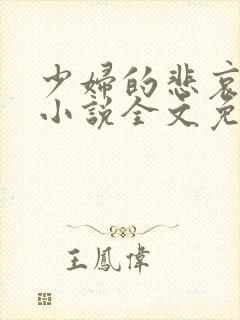 少婦的悲哀
小説全文免
王鳳偉